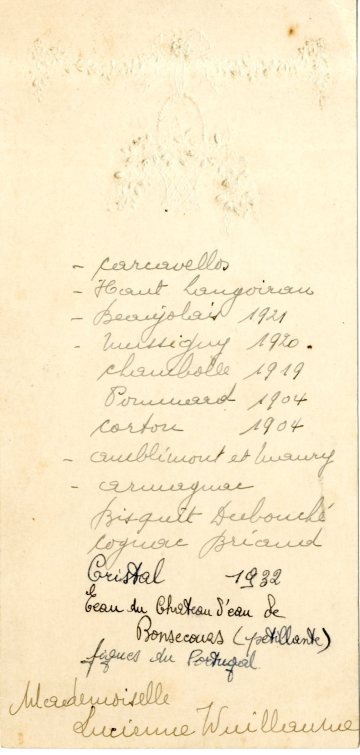 - Carcavellos
- Haut Langoiran
- Beaujolais 1921
- Mussigny 1920.
Chambolle 1919
Pommard 1904
Corton 1904
- Amblimont et Maury
- Armagnac
Bisquit Dubouché
Cognac Briand
Cristal 1932
Eau du Chateau d'eau de
Bonsecours (pétillante)
figues du Portugal
Mademoiselle
Lucienne Wuillaume